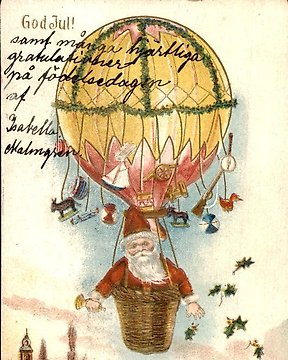 God Jul!
samt många hjärtliga
gratulationer
på födelsedagen
af
Isabella
Malmgren